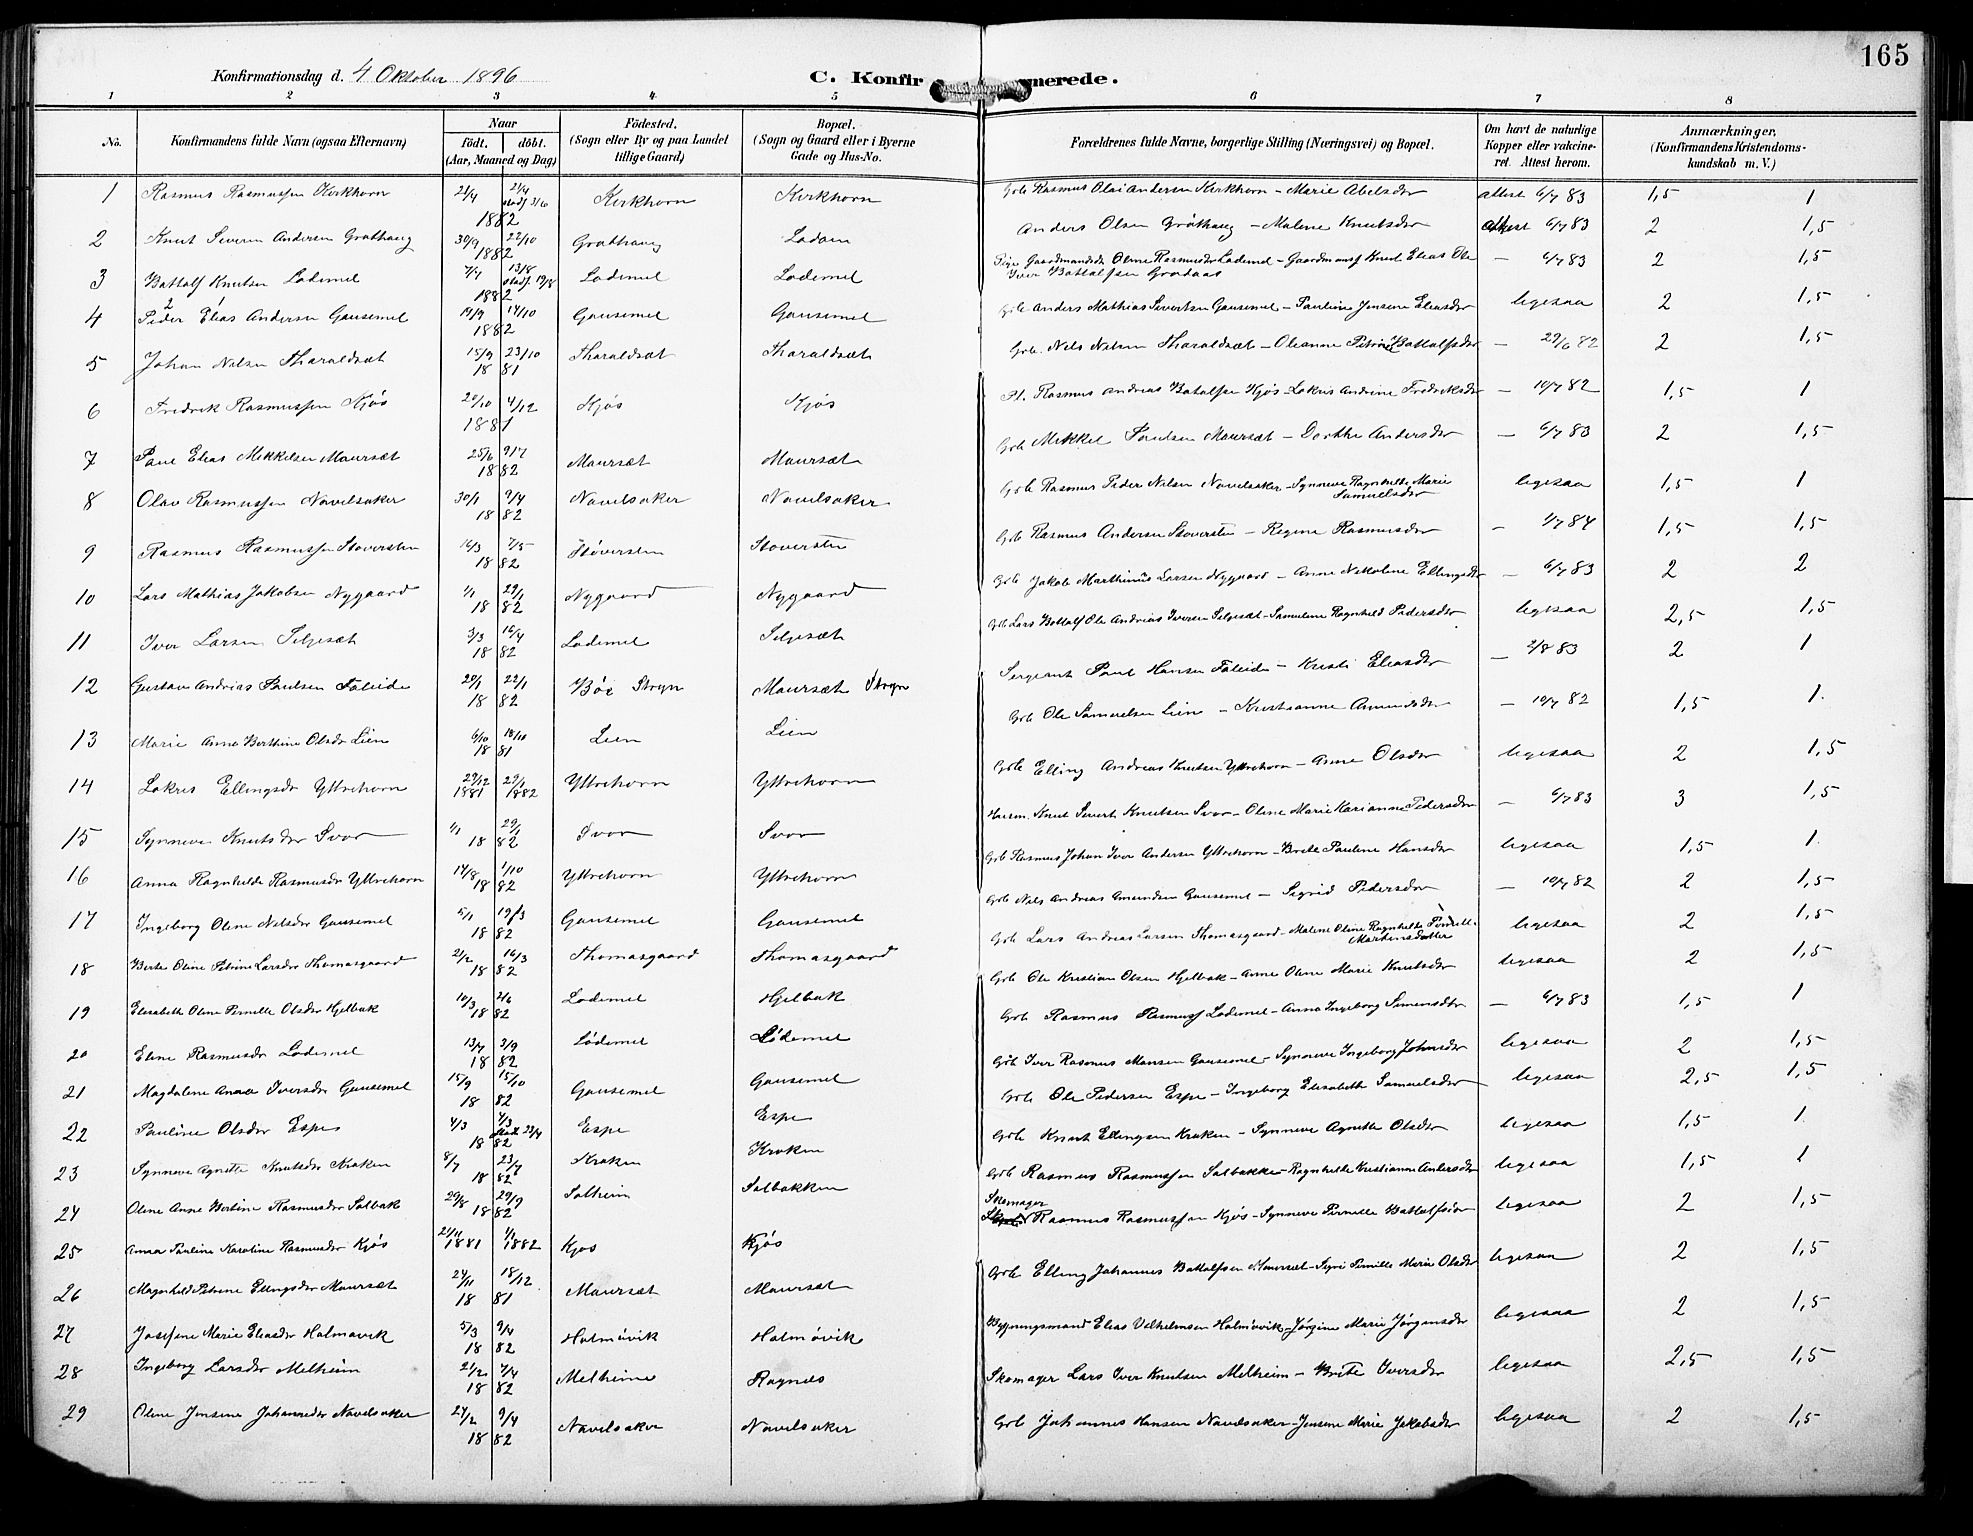 165
Konfirmationsdag d. 4 Oktober 1896 C. Konfir merede.
1 2 3 4 5 6 7 8
No. Konfirmandens fulde Navn (ogsaa Efternavn) Naar født. døbt. (Aar, Maaned og Dag) Fødested. (Sogn eller By og paa Landet tillige Gaard) Bopæl. (Sogn og Gaard eller i Byerne Gade og Hus-No. Forældrenes fulde Navne, borgerlige Stilling (Næringsvei) og Bopæl. Om havt de naturlige Kopper eller vakcineret. Attest herom. Anmærkninger, (Konfirmandens Kristendomskundskab m. V.)
1 Rasmus Rasmussen Kirkhorn 21/4 1882 Kirkhorn Kirkhorn Gbr Rasmus Olai Andersen Kirkhorn - Marie Abelsdtr attest 6/7 83 1,5 1
2 Knut Severin Andersen Grøthaug 30/9 22/10 1882 Grøthaug Lødøen Anders Olsen Grøthaug - Malene Knutsdtr attest 6/7 83 2 1,5
3 Battolf Knutsen Lødemel 7/7 13/8 stadf. 19/8 1882 Lødemel Lødemel Pige Oline Rasmusdtr Lødemel - Knut Elias
Iver Battolfsen Grodaas — 6/7 83 2 1,5
4 Peder Elias Andersen Gausemel 19/9 14/10 1882 Gausemel Gausemel Gbr Anders Mathias Sivertsen Gausemel - Pauline Jensine Eliasdtr ligesaa 2 1,5
5 Johan Nilsen Tharaldsæt 15/9 23/10 1881 Tharaldsæt Tharaldsæt Gbr. Nils Nilsen Tharaldsæt - Oleanne Petrine Battolfsdtr — 29/6 82 2 1,5
6 Fredrik Rasmussen Kjøs 20/10 4/12 1881 Kjøs Kjøs Pl. Rasmus Andreas Battolfsen Kjøs - Lokris Andrine Fredriksdtr — 10/7 82 1,5 1
7 Paul Elias Mikkelsen Maursæt 25/6 9/7 1882 Maursæt Maursæt Gbr Mikkel Paulsen Maursæt - Dorthe Andersdtr — 6/7 83 2 1,5
8 Olav Rasmussen Navelsaker 30/1 9/4 1882 Navelsaker Navelsaker Gbr Rasmus Peder Nilsen Navelsaker - Synneve Ragnhilde Marie
Samuelsdtr ligesaa 1,5 1
9 Rasmus Rasmussen Støversten 16/3 7/5 1882 Støversten Støversten Gbr Rasmus Andersen Støversten - Regine Rasmusdtr — 1/7 84 1,5 1,5
10 Lars Mathias Jakobsen Nygaard 1/1 29/1 1882 Nygaard Nygaard Gbr Jakob Marthinus Larsen Nygaard - Anne Nikoline Ellingsdtr — 6/7 83 2 2
11 Iver Larsen Selgesæt 3/3 16/4 1882 Lødemel Selgesæt Gbr Lars Battolf Ole Andreas Iversen Selgesæt - Samueline Ragnhild Pedersdtr ligesaa 2,5 1,5
12 Gustav Andreas Paulsen Faleide 20/1 22/1 1882 Bøe Stryn Maursæt Stryn Sergeant Paul Hansen Faleide - Kristi Eliasdtr — 2/8 83 2 1
13 Marie Anne Berthine Olsdtr Lien 6/10 16/10 1881 Lien Lien Gbr Ole Samuelsen Lien - Kristianne Amundsdtr — 10/7 82 1,5 1
14 Lokris Ellingsdtr Yttrehorn 29/12 1881 29/1 1882 Yttrehorn Yttrehorn Gbr Elling Andreas Knutsen Yttrehorn - Anne Olsdtr ligesaa 2 1,5
15 Synneve Knutsdtr Svor 1/1 29/1 1882 Svor Svor Husm. Knut Sivert Knutsen Svor - Oline Marie Karianne Pedersdtr — 6/7 83 3 1,5
16 Anna Ragnhilde Rasmusdtr Yttrehorn 14/8 1/10 1882 Yttrehorn Yttrehorn Gbr Rasmus Johan Iver Andersen Yttrehorn - Brite Pauline Hansdtr ligesaa 1,5 1
17 Ingeborg Oline Nilsdtr Gausemel 5/1 19/3 1882 Gausemel Gausemel Gbr Nils Andreas Amundsen Gausemel - Sigrid Pedersdtr — 10/7 82 2 1,5
18 Berte Oline Petrine Larsdtr Thomasgaard 21/2 16/3 1882 Thomasgaard Thomasgaard Gbr Lars Andreas Larsen Thomasgaard - Malene Oline Ragnhilde Pernille
Martinsdatter ligesaa 2 1,5
19 Elisabeth Oline Pernille Olsdtr Hjelbak 10/3 2/6 1882 Lødemel Hjelbak Gbr Ole Kristian Olsen Hjelbak - Anne Oline Marie Knutsdtr ligesaa 2 1,5
20 Eline Rasmusdtr Lødemel 13/7 3/9 1882 Lødemel Lødemel Gbr Rasmus Rasmuss Lødemel - Anna Ingeborg Simensdtr — 6/7 83 1,5 1
21 Magdalene Anna Iversdtr Gausemel 15/9 15/10 1882 Gausemel Gausemel Gbr Iver Rasmus Monsen Gausemel - Synneve Ingeborg Johnsdtr ligesaa 2 1,5
22 Pauline Olsdtr Espe 4/3 1882 Espe Espe Gbr Ole Pedersen Espe - Ingeborg Elisabeth Samuelsdtr ligesaa 2,5 1,5
23 Synneve Agnette Knutsdtr Kraken 8/7 23/7 1882 Kraken Kraken Gbr Knut Ellingsen Kraken - Synneve Agnette Olsdtr ligesaa 1,5 1
24 Oline Anne Bertine Rasmusdtr Solbak 29/8 29/9 1882 Solheim Solbakken Gbr Rasmus Rasmussen Solbakke - Ragnhilde Kristianne Andersdtr ligesaa 1,5 1
25 Anna Pauline Karoline Rasmusdtr Kjøs 21/11 1881 1/1 1882 Kjøs Kjøs Skomager
Rasmus Rasmussen Kjøs - Synneve Pernille Battolfsdtr ligesaa 2 1,5
26 Magnhild Petrine Ellingsdtr Maursæt 24/11 18/12 1881 Maursæt Maursæt Gbr Elling Johannes Battolfsen Maursæt - Siri Pernille Marie Olsdtr ligesaa 2 1,5
27 Josefine Marie Eliasdtr Holmøvik 5/3 9/4 1882 Holmøvik Holmøvik Bygningsmand Elias Vilhelmsen Holmøvik - Jørgine Marie Jørgensdtr ligesaa 2 1,5
28 Ingeborg Larsdtr Melheim 21/2 7/4 1882 Melheim Rognæs Skomager Lars Iver Knutsen Melheim - Brite Iversdtr ligesaa 2,5 1,5
29 Oline Jensine Johannesdtr Navelsaker 24/2 9/4 1882 Navelsaker Navelsaker Gbr Johannes Hansen Navelsaker - Jensine Marie Jakobsdtr ligesaa 2 1,5